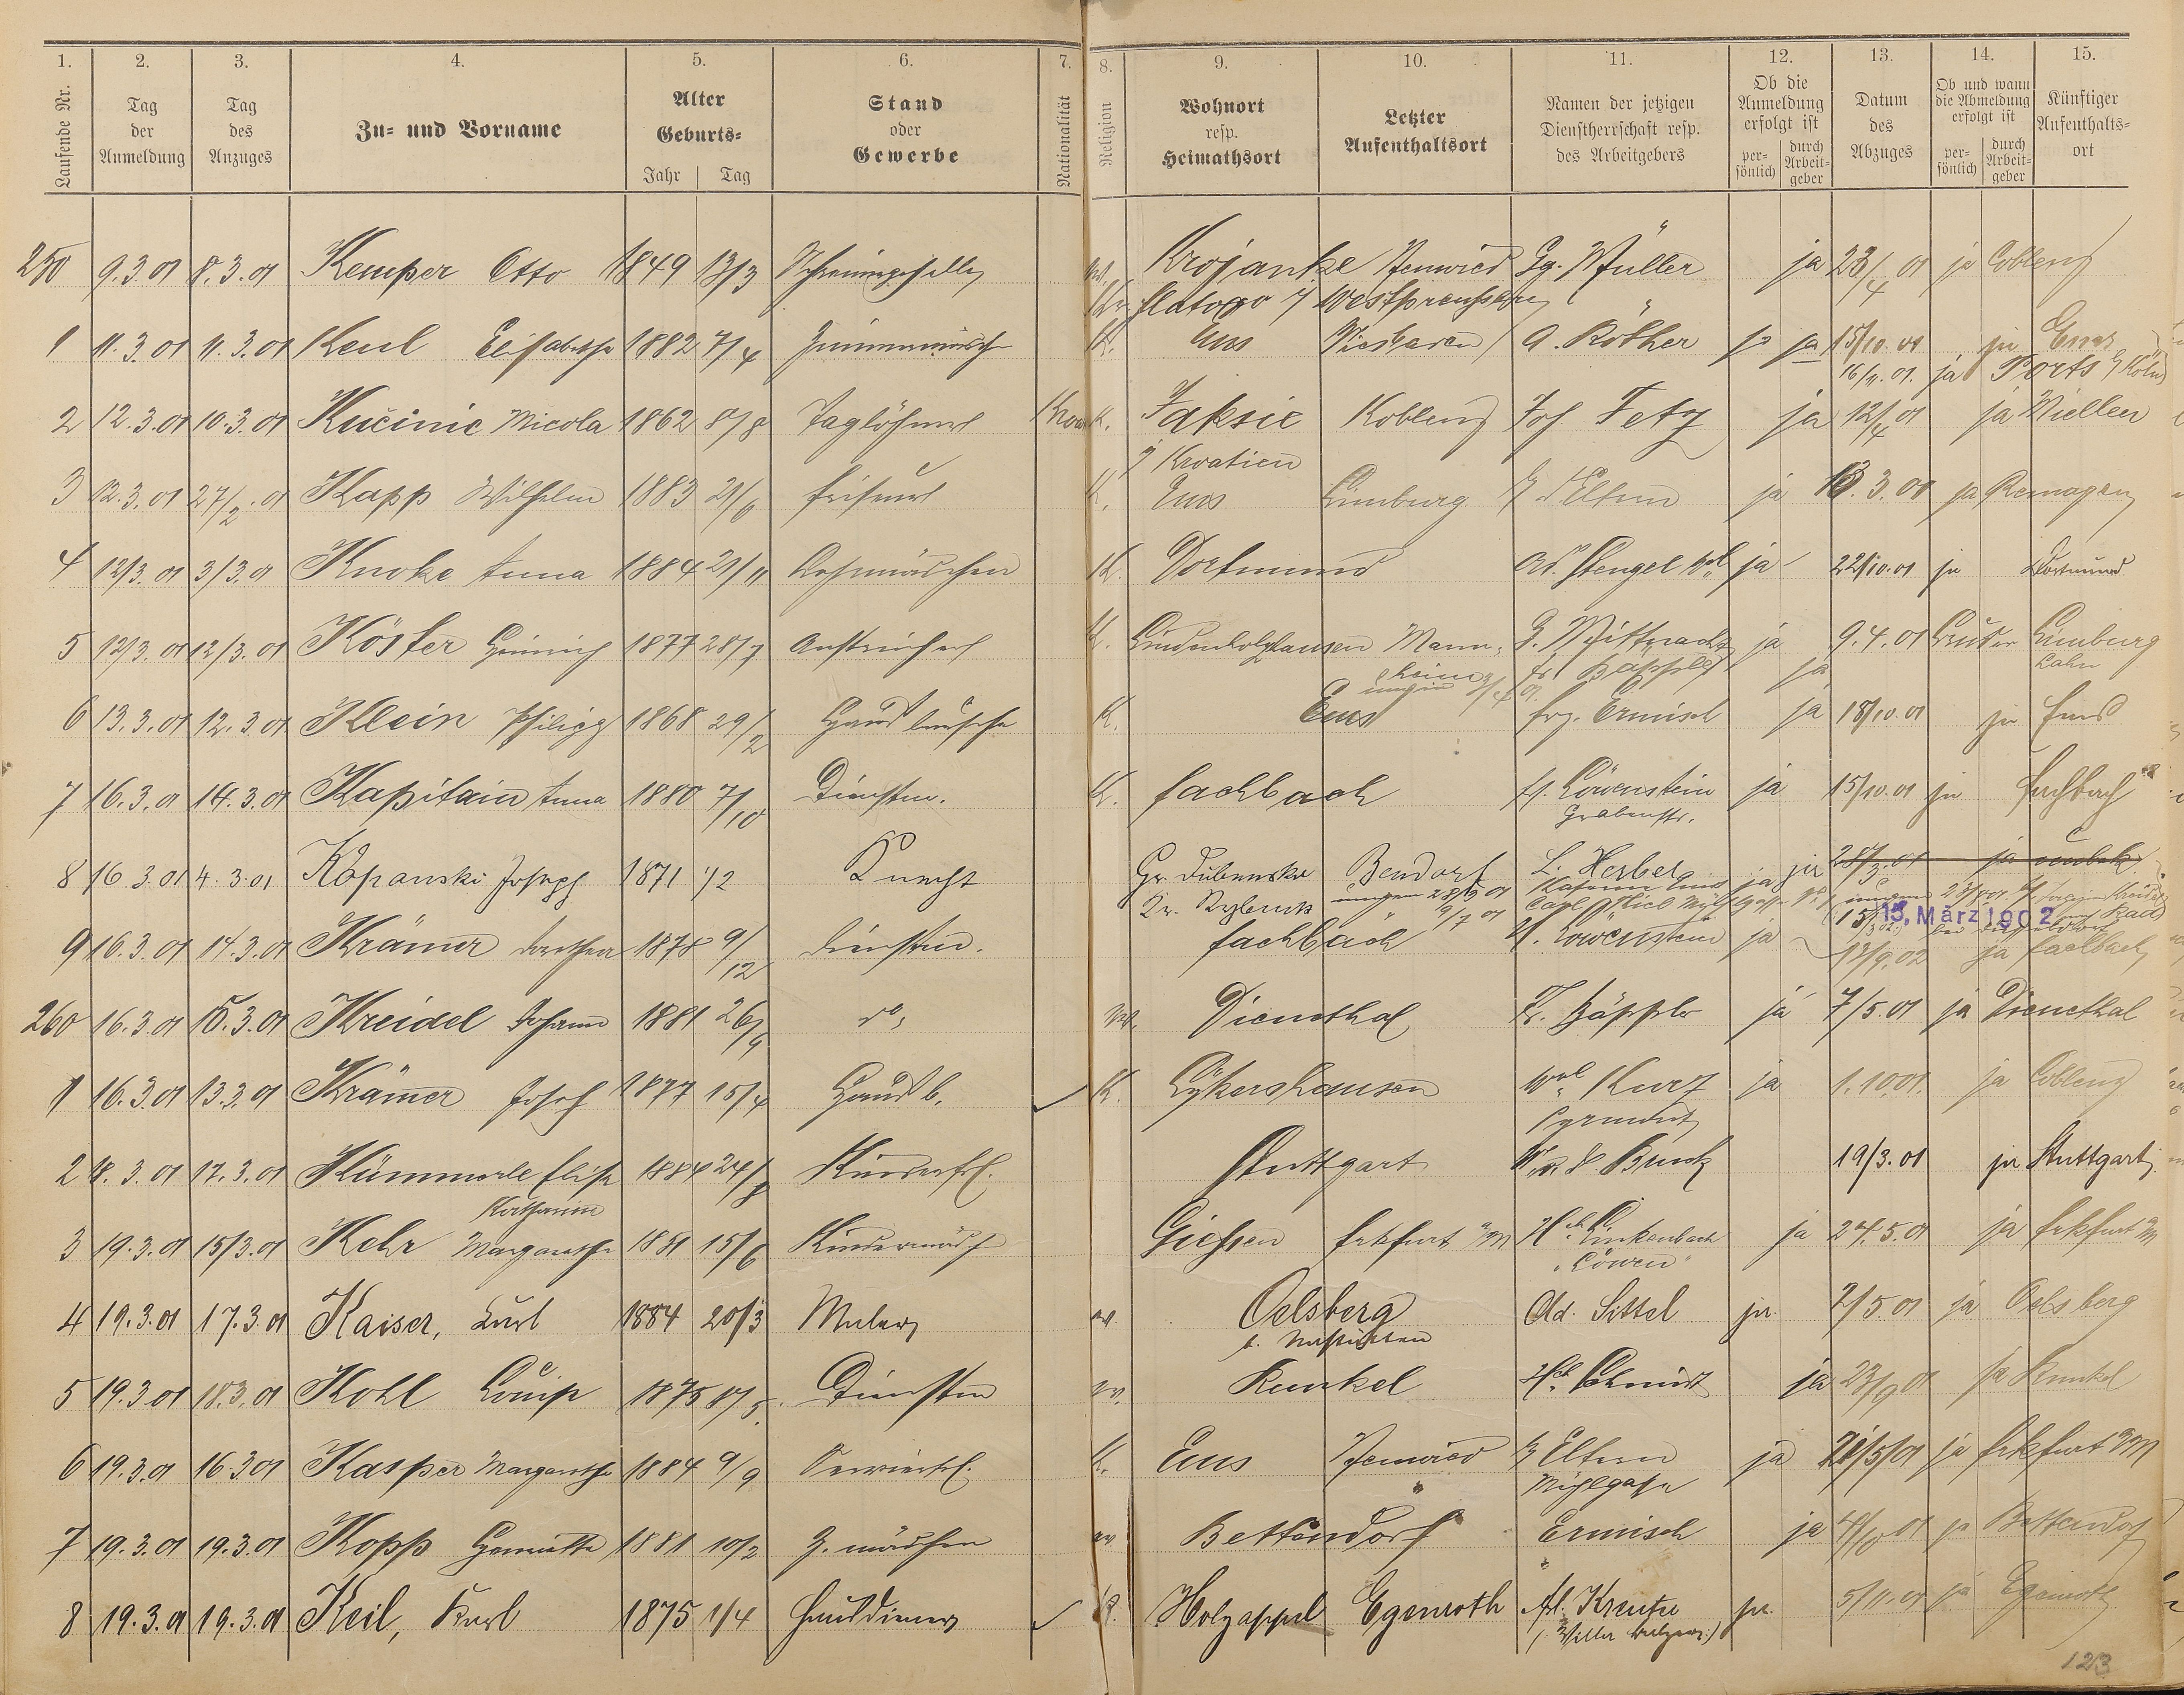 1. 2. 3. 4. 5. 6. 7. 8. 9. 10. 11. 12. 13. 14. 15.
Laufende Nr. Tag der Anmeldung Tag des Anzuges Zu= und Vorname Alter Geburts= Jahr Tag Stand oder Gewerbe Nationalität Religion Wohnort resp. Heimathsort Letzter Aufenthaltsort Namen der jetzigen Dienstherrschaft resp. des Arbeitgebers Ob die Anmeldung erfolgt ist per= sönlich durch Arbeit= geber Datum des Abzuges Ob und wann die Abmeldung erfolgt ist per= sönlich durch Arbeit= geber Künftiger Aufenthalts= ort
250 9.3.01 8.3.01 Kemper Otto 1849 13/3 ev. Krojanke Neuwied Gg. Müller ja 23/4 01 ja Coblenz
Kr. Flatow Westpreussen
1 11.3.01 11.3.01 Keul Elisabethe 1882 7/4 K. Ems Wiesbaden A. Röther ja 15/10.01 ja Ems
16/11.01. ja Köln
2 12.3.01 10.3.01 Kučinic Nicola 1862 8/8 Taglöhner K. Jaksic Koblenz Jos Fetz ja 12/4 01 ja Miellen
Kroatien
3 12.3.01 27/2.01 Kapp Wilhelm 1883 21/6 Friseur K. Ems Limburg z Eltern ja 3.01 ja Remagen
4 12/3.01 3/3.01 Knoke Anna 1884 21/11 K. Dortmund Ad. Stengel ja 22/10.01 ja Dortmund
5 12/3.01 12/3.01 Köster Heinrich 1877 28/7 Anstreicher K. Lindenholzhausen Mann= ja 9.4.01 Limburg
heim ja Lahn
6 13.3.01 12.3.01 Klein Philipp 1868 29/2 Hausbursche K. Ems Frz. Ermisch ja 18/10.01 ja Ems
7 16.3.01 14.3.01 Kapitain Anna 1880 7/10 Dienstm. K. Fachbach H. Löwenstein ja 15/10.01 ja Fachbach
Grabenstr.
8 16.3.01 4.3.01 Kopanski Joseph 1871 1/2 Knecht Gr. Dubensko Bendorf L. Herber ja
Kr. Rybnik
15. März 1902
9 16.3.01 14.3.01 Krämer Dorothea 9/12 Fachbach H. Löwenstein ja 13/9.02 ja Fachbach
260 16.3.01 15.3.01 Kreidel Johann 1881 26/9 do. ev. Dienethal Fr. Häppler ja 7/5.01 ja Dienethal
1 16.3.01 13.3.01 Krämer Josef 1877 15/4 Hausb. K. Lykershausen Kurz ja 1.10.01. ja Coblenz
Pyrmont
2 18.3.01 17.3.01 Kümmerle Elise 1884 24/8 Kinderfrl. Stuttgart 19/3.01 ja Stuttgart
Katharina
3 19.3.01 15/3.01 Kehr Margarethe 15/6 Kindermädch Giessen Frkfurt a/M Hch. Linkenbach ja 24.5.01 ja Frkfurt a/M
"Löwen"
4 19.3.01 17.3.01 Kaiser, Karl 1884 20/3 Maler ev. Oelsberg Ad. Sittel ja 2/5.01 ja Oelsberg
b. Nastätten
5 19.3.01 18.3.01 Kohl Louise 1875 Dienstm ev. Runkel Hch. Schmidt ja 23/9 01 ja Runkel
6 19.3.01 16.3.01 Kasper Margarethe 1884 9/9 Servierfrl. K. Ems Neuwied z Eltern ja 21/5/01 ja Frkfurt a/M
Mühlgasse
7 19.3.01 19.3.01 Kopp Henriette 1881 10/2 Z. mädchen ev Bettendorf Ermisch ja 4/10 01 ja Bettendorf
8 19.3.01 19.3.01 Keil, Karl 1875 1/4 Hausdiener K. Holzappel Egenroth ja. 5/11.01 ja Egenroth
123